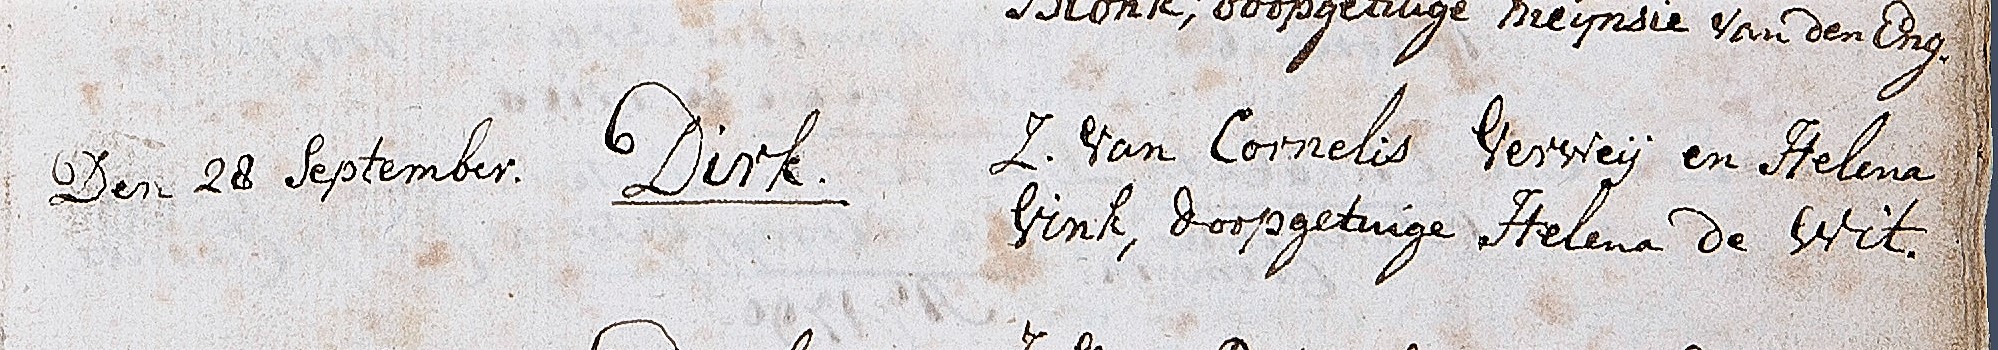 Blonk, doopgetuige Meijnsie van den Eng.
Den 28 September. Dirk. Z. van Cornelis Verweij en Helena
Vink, doopgetuige Helena de Wit.